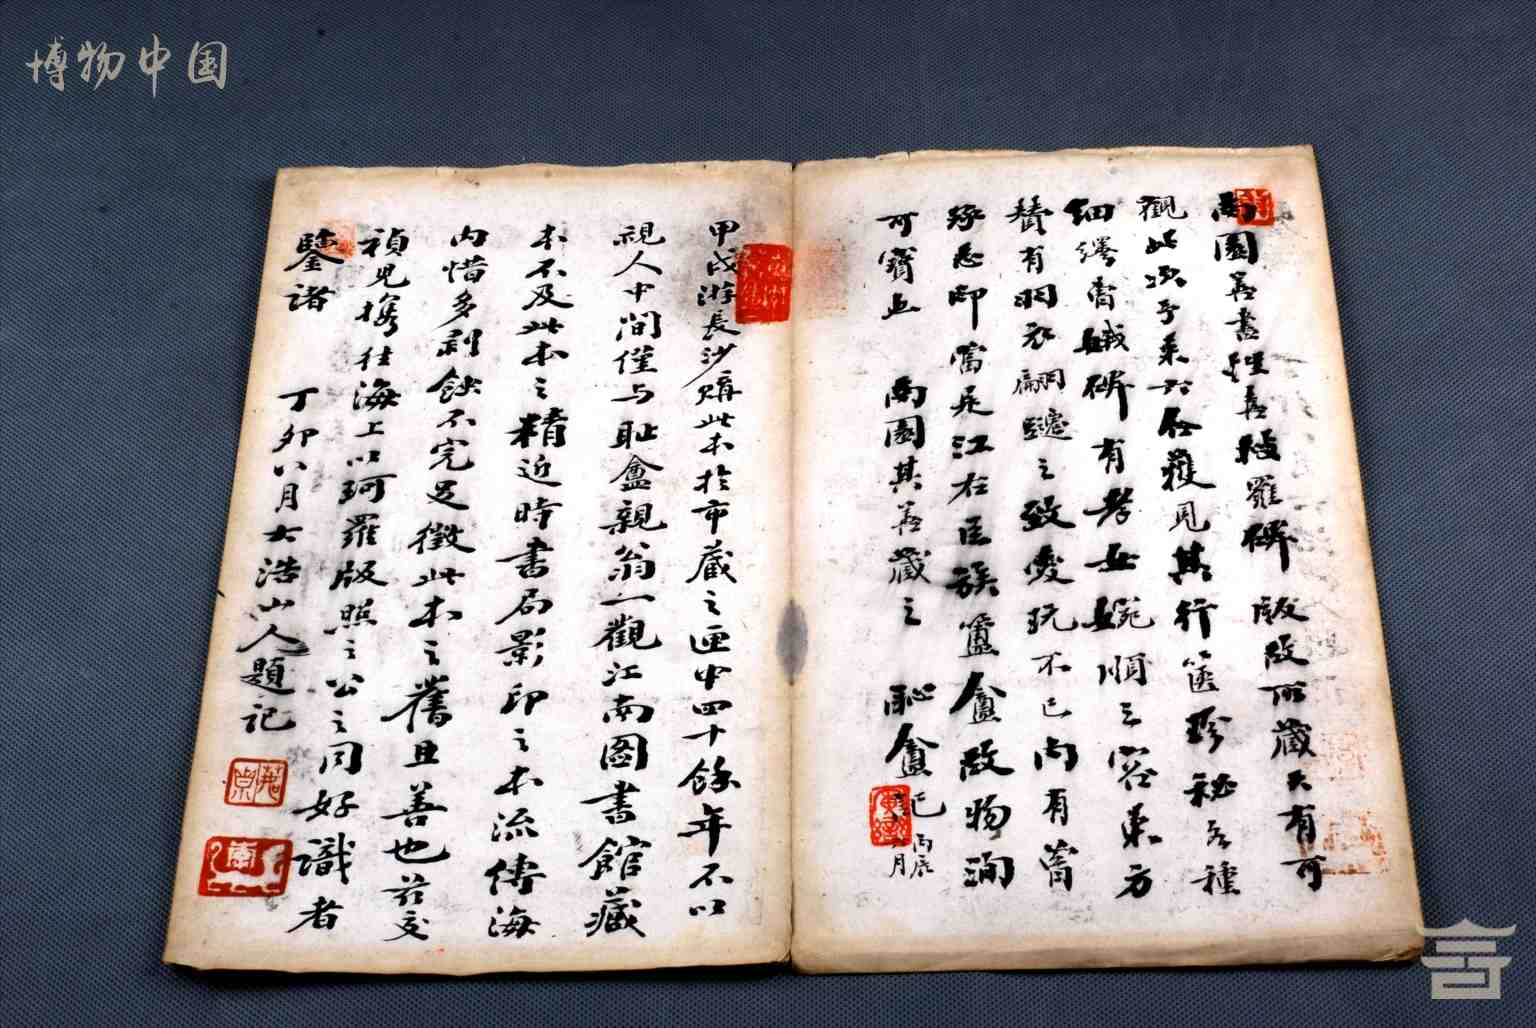 博物中国
南園善書煙嘉殘羅碑版改所藏不有可
觀此次予來於各獲見其行篋珍秘各種
細繹曹娥碑有孝女婉順之容東方
贊有羽衣翩躚之致愛玩不已内有葡
孫忌印當是江右巨族籃盦故物洵
可寶也 南園其善藏之 恥盦記 丙辰 六月
甲戌游長沙購此本於市藏之匣中四十餘年不以
視人中間僅与恥盦親翁一觀江南图書館藏
本不及此本之精近時書局影印之本流傳海
内惜多剥蝕不完足徵此本之舊且善也茲交
禎兒携往海上以珂羅版照之公之同好識者
鑒諸 丁卯八月古浩山人題記